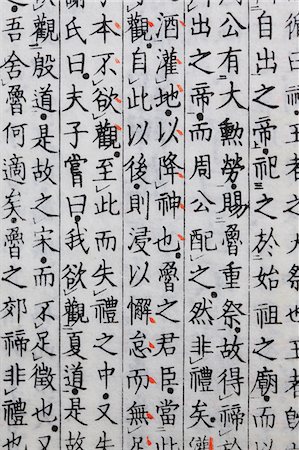 循曰禘王者之大祭也王者
自出之帝祀之於始祖之廟而以
公有大勳勞賜魯重祭故得禘於
出之帝而周公配之然非禮矣灌
酒灌地以降神也魯之君臣當此
觀自此以後則浸以懈怠而無足
子本不欲觀至此而失禮之中又失
謝氏曰夫子嘗曰我欲觀夏道是故
觀殷道是故之宋而不足徵也又
吾舍魯何適矣魯之郊禘非禮也